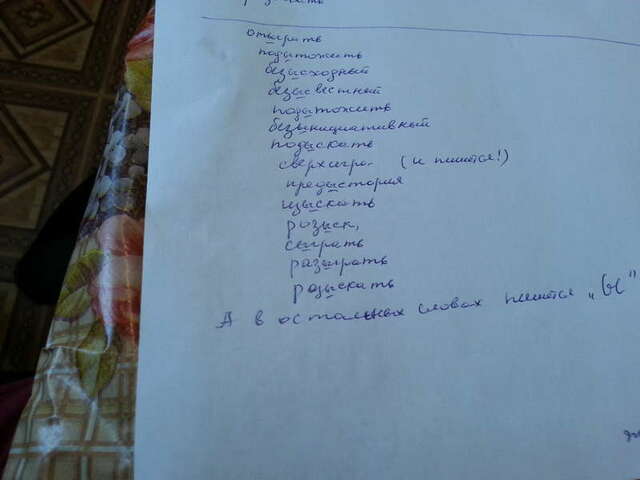 отыграть
подытожить
безысходный
безызвестный
подытожить
безынициативный
подыскать
сверхигра- (и пишется!)
предыстория
изыскать
розыск,
сыграть
разыграть
разыскать
А в остальных словах пишется „Ы"